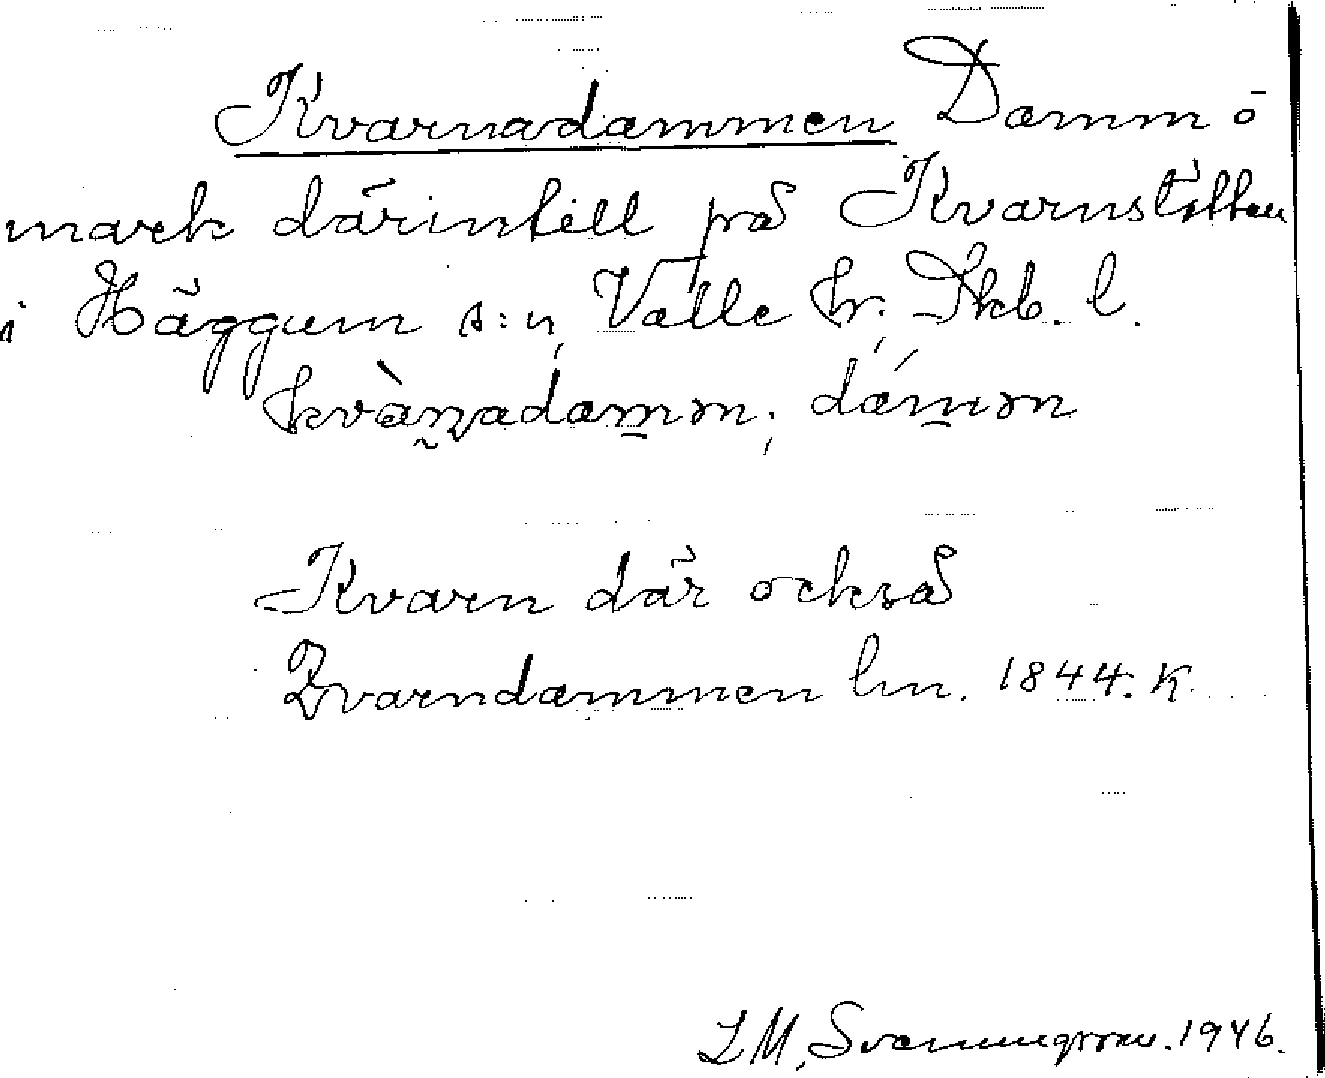 Kvarnadammen Damm o
mark därintill på Kvarnstället
i Häggum s:n, Valle hr; Skb. l.
kvàṇadam̱m; dám̱m
Kvarn där också
Qvarndammen lm. 1844. K
L M, Svenungsson. 1946.